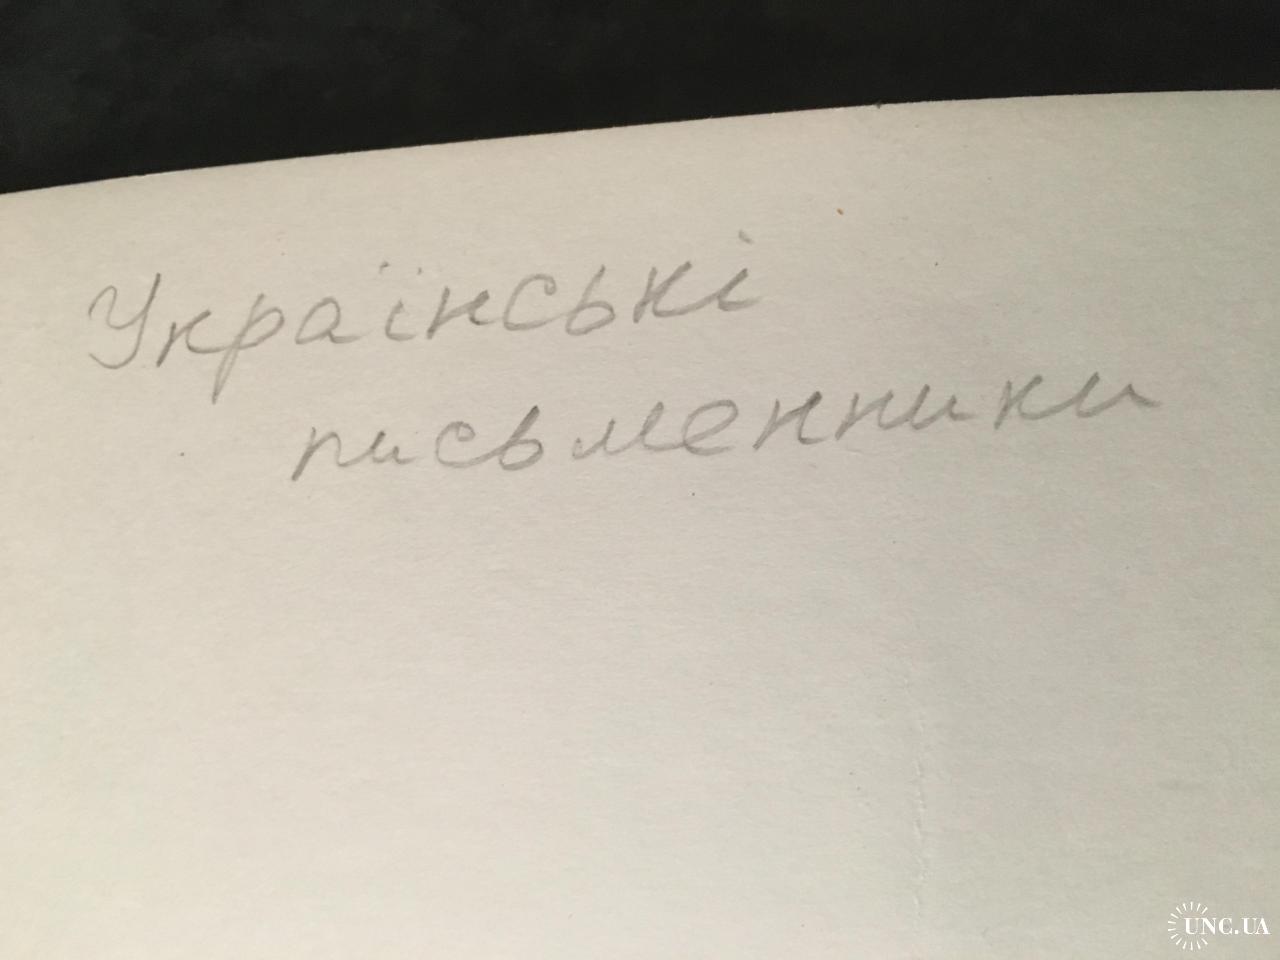 Українські
письменники
UNC.UA